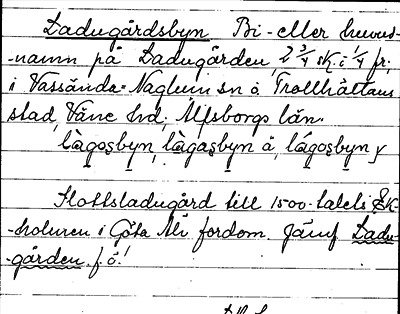 Ladugårdsbyn. Bi- eller huvud-
-namn på Ladugården, 2 3/4 sk. i 1/4 fr.
i Vassända-Naglum sn o Trollhättans
stad, Väne hd, Älfsborgs län.
lågosbyn, lågasbyn å, lågosbyn y
Slottsladugård till 1500-talets Ek-
-holmen i Göta Älv fordom. Jämf Ladu-
-gården f.ö.!